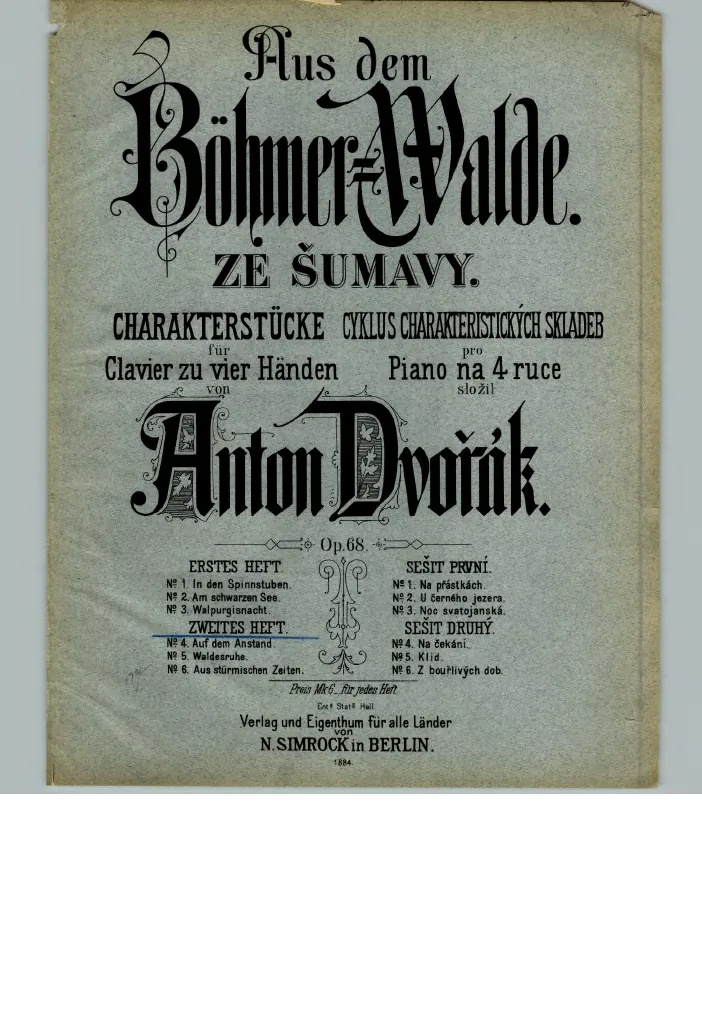 Aus dem
Böhmer=Walde.
ZE ŠUMAVY.
CHARAKTERSTÜCKE
für
Clavier zu vier Händen
von
CYKLUS CHARAKTERISTICKÝCH SKLADEB
pro
Piano na 4 ruce
složil
Anton Dvořák.
Op. 68.
ERSTES HEFT.
Nº 1. In den Spinnstuben.
Nº 2. Am schwarzen See.
Nº 3. Walpurgisnacht.
ZWEITES HEFT.
Nº 4. Auf dem Anstand.
Nº 5. Waldesruhe.
Nº 6. Aus stürmischen Zeiten.
SEŠIT PRVNÍ.
Nº 1. Na přástkách.
Nº 2. U černého jezera.
Nº 3. Noc svatojanská.
SEŠIT DRUHÝ.
Nº 4. Na čekání.
Nº 5. Klid.
Nº 6. Z bouřlivých dob.
Preis Mk 6_ für jedes Heft.
Entd Stats Hall.
Verlag und Eigenthum für alle Länder
von
N. SIMROCK in BERLIN.
1884.